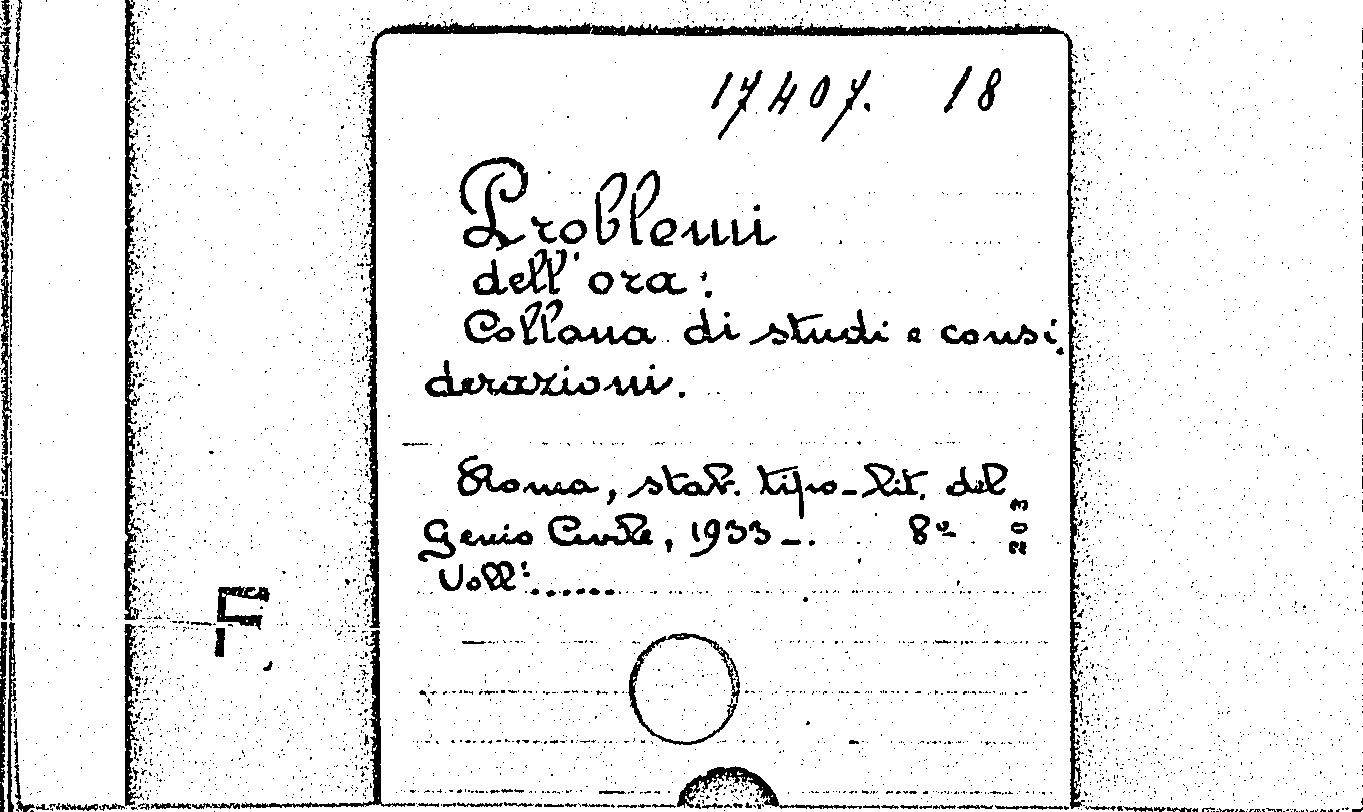 17407. 18
Problemi
dell'ora:
Collana di studi e consi
derazioni.
Roma, stab. tipo-lit. del
Genio Civile, 1933-. 8º
203
Voll: ......
F